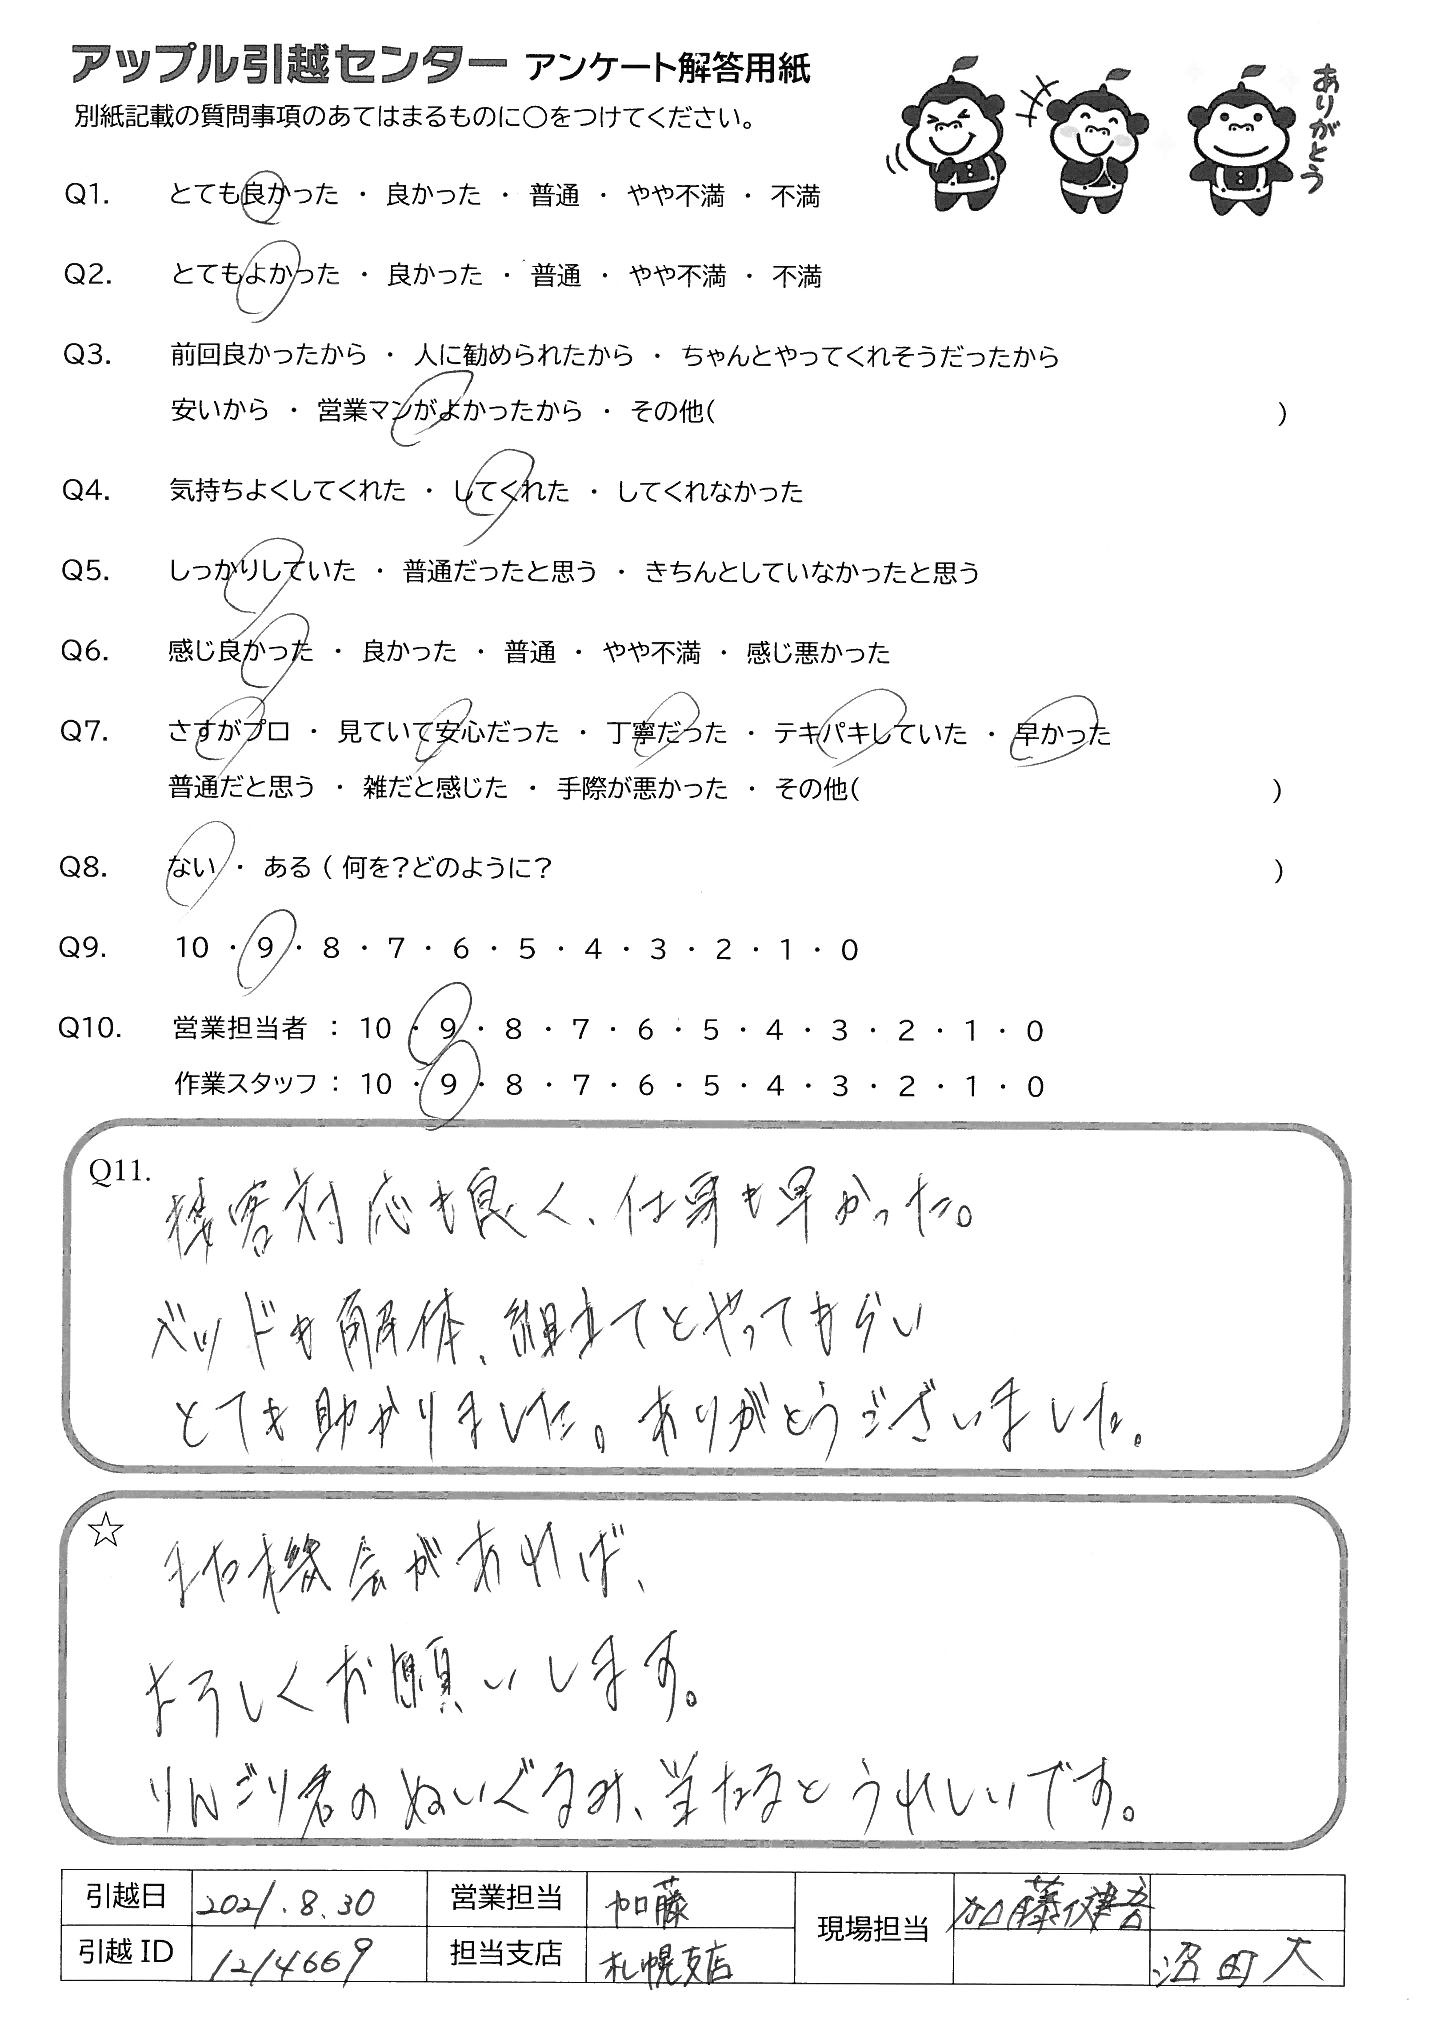 アップル引越センター アンケート解答用紙
ありがとう
別紙記載の質問事項のあてはまるものに○をつけてください。
Q1. とても良かった ・ 良かった ・ 普通 ・ やや不満 ・ 不満
Q2. とてもよかった ・ 良かった ・ 普通 ・ やや不満 ・ 不満
Q3. 前回良かったから ・ 人に勧められたから ・ ちゃんとやってくれそうだったから
安いから ・ 営業マンがよかったから ・ その他( )
Q4. 気持ちよくしてくれた ・ してくれた ・ してくれなかった
Q5. しっかりしていた ・ 普通だったと思う ・ きちんとしていなかったと思う
Q6. 感じ良かった ・ 良かった ・ 普通 ・ やや不満 ・ 感じ悪かった
Q7. さすがプロ ・ 見ていて安心だった ・ 丁寧だった ・ テキパキしていた ・ 早かった
普通だと思う ・ 雑だと感じた ・ 手際が悪かった ・ その他( )
Q8. ない ・ ある ( 何を?どのように? )
Q9. 10 ・ 9 ・ 8 ・ 7 ・ 6 ・ 5 ・ 4 ・ 3 ・ 2 ・ 1 ・ 0
Q10. 営業担当者 : 10 ・ 9 ・ 8 ・ 7 ・ 6 ・ 5 ・ 4 ・ 3 ・ 2 ・ 1 ・ 0
作業スタッフ : 10 ・ 9 ・ 8 ・ 7 ・ 6 ・ 5 ・ 4 ・ 3 ・ 2 ・ 1 ・ 0
Q11. 接客対応も良く、仕事も早かった。
ベッドも解体、組立てとやってもらい
とても助かりました。ありがとうございました。
☆ また機会があれば、
よろしくお願いします。
りんごり君のぬいぐるみ、当たるとうれしいです。
引越日 2021.8.30 営業担当 加藤 現場担当 加藤健吾
引越ID 1214669 担当支店 札幌支店 沼田大